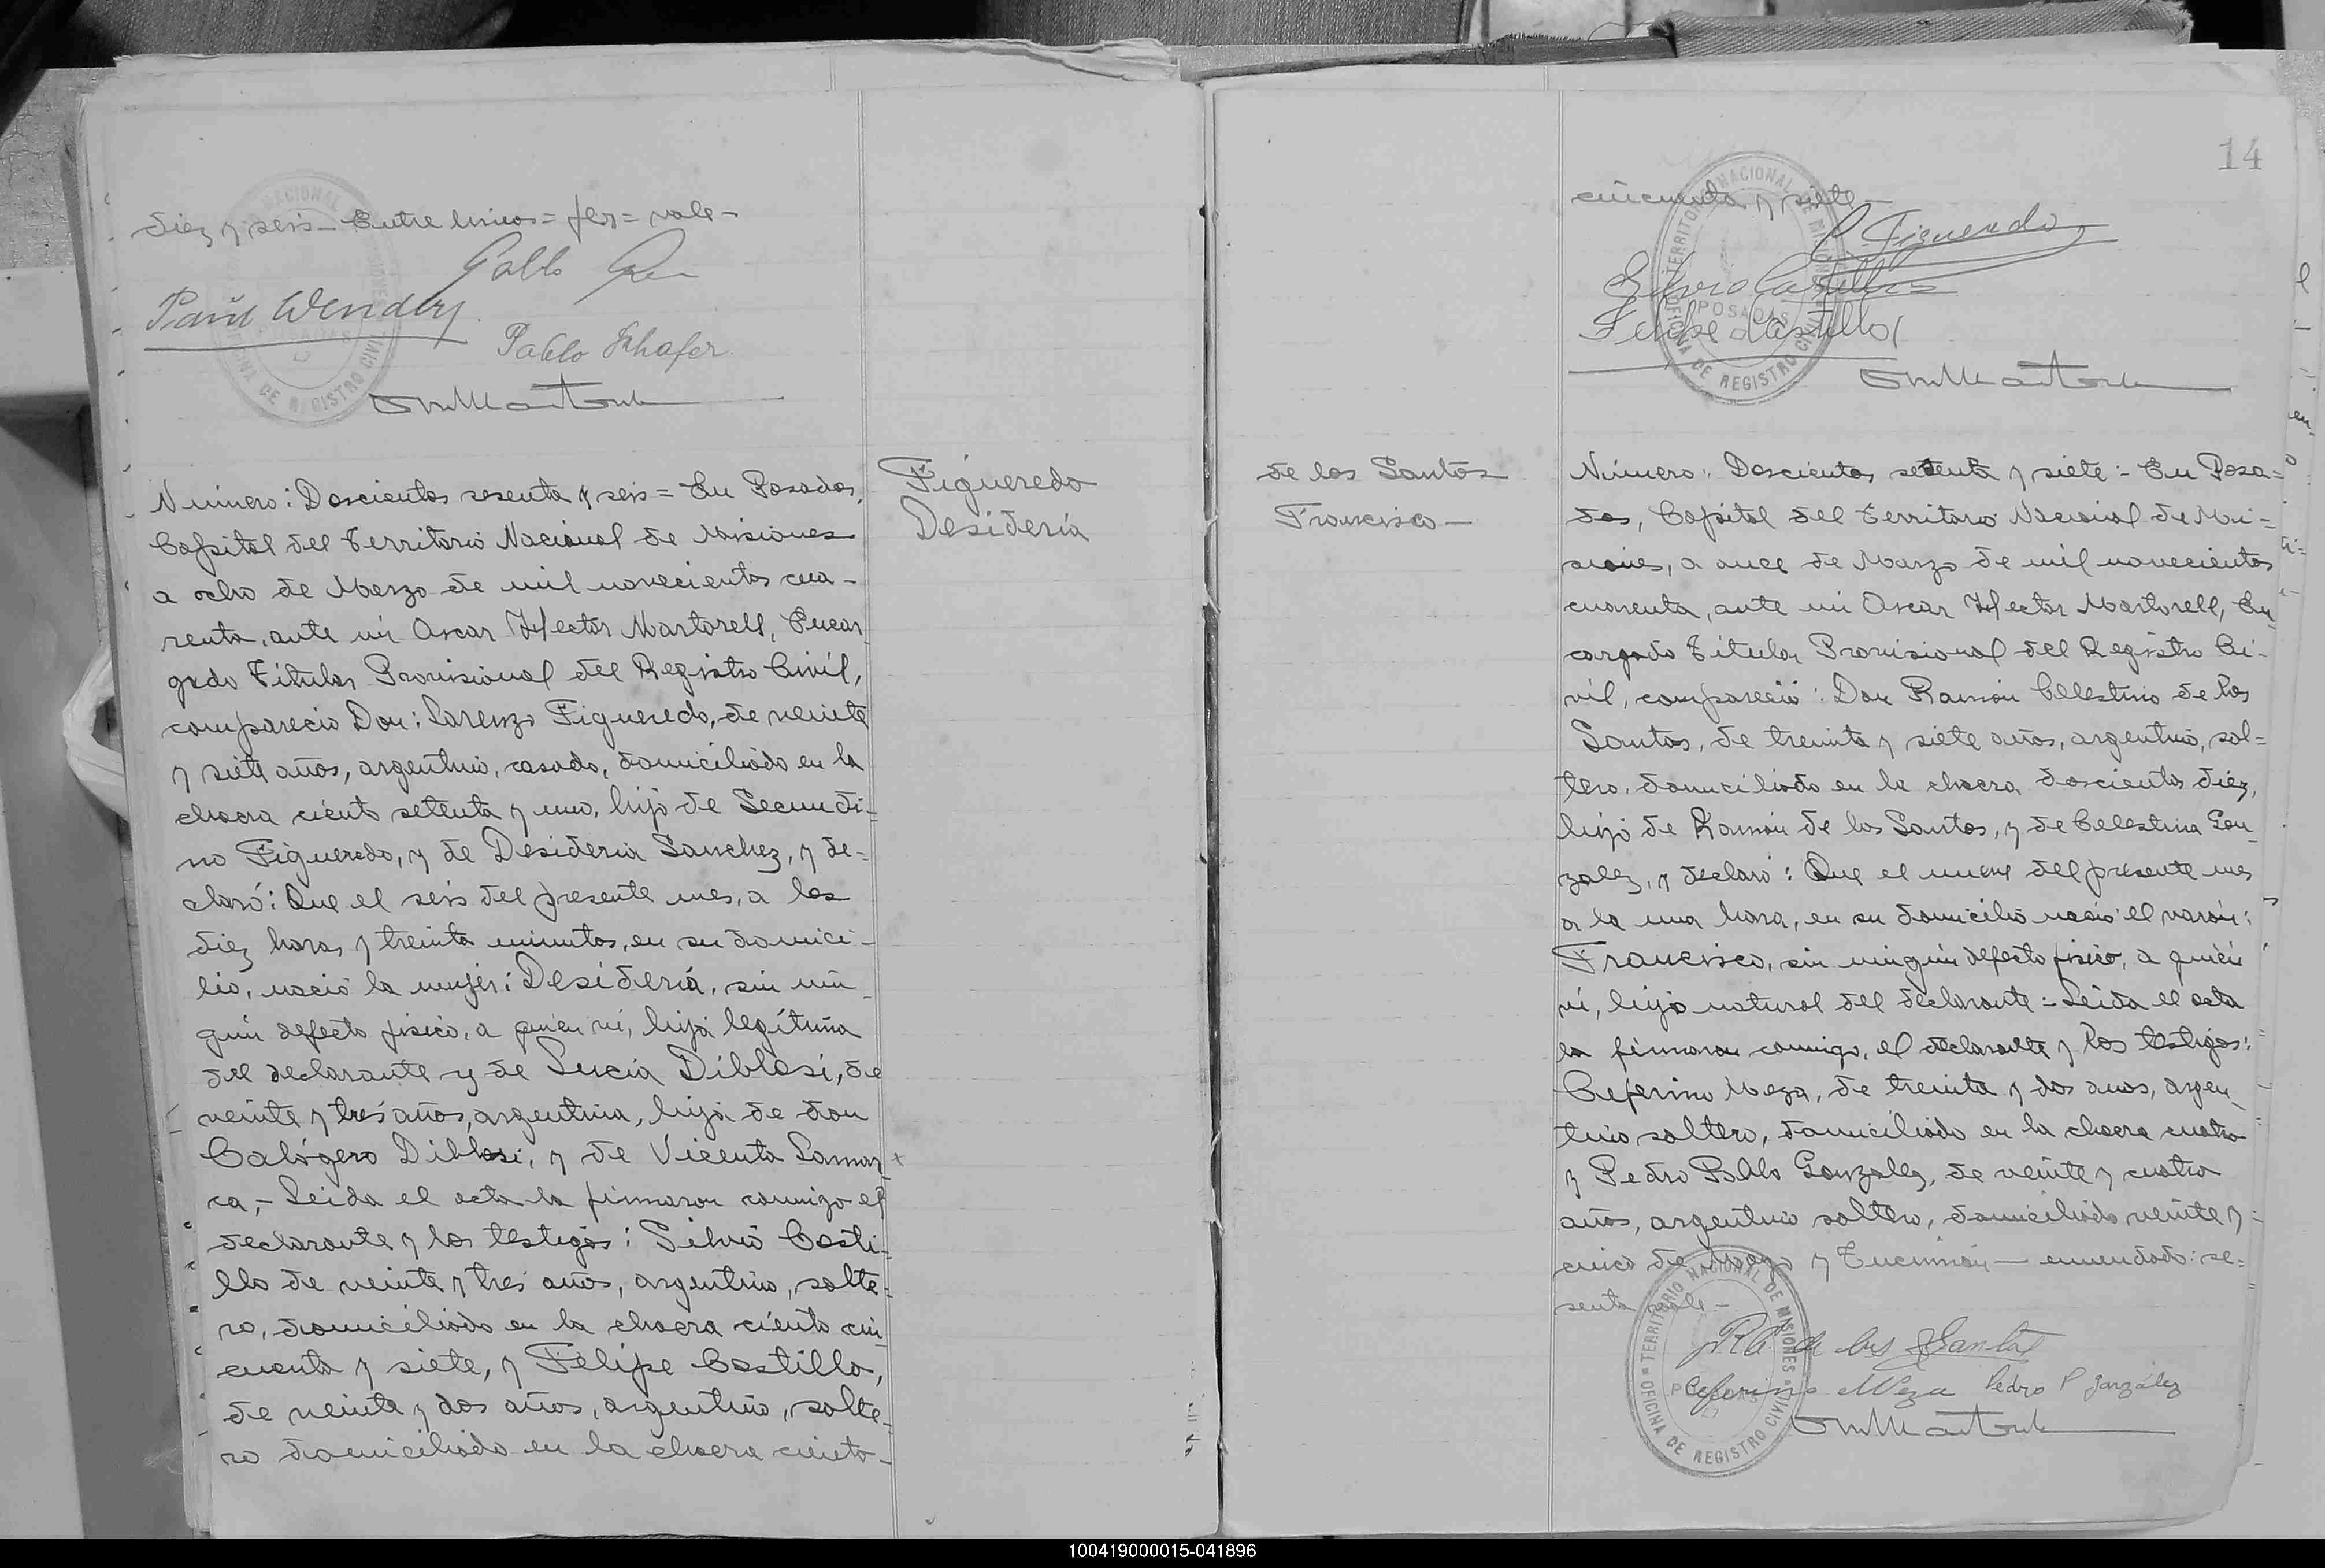 diez y seis - Entre lineas = fer = vale -
Pablo Schafer
Numero: Doscientos sesenta y seis = En Posadas,
Capital del Territorio Nacional de Misiones
a ocho de Marzo de mil novecientos cua-
renta, ante mi Oscar Hector Martorell, Encar-
gado Titular Provisional del Registro Civil,
comparecio Don: Lorenzo Figueredo, de veinte
y siete años, argentino, casado, domiciliado en la
chacra ciento setenta y uno, hijo de Secundi=
no Figueredo, y de Desideria Sanchez, y de=
claró: Que el seis del presente mes, a las
diez horas y treinta minutos, en su domici-
lio, nació la mujer: Desideria, sin nin-
gun defecto fisico, a quien vi, hija legítima
del declarante y de Lucia Diblasi, de
veinte y tres años, argentina, hija de don
Calógero Diblasi, y de Vicenta Lamar-
ca, - Leida el acta la firmaron conmigo el
declarante y los testigos: Silvio Casti=
llo de veinte y tres años, argentino, solte=
ro, domiciliado en la chacra ciento cin-
cuenta y siete, y Felipe Castillo,
de veinte y dos años, argentino, solte=
ro domiciliado en la chacra ciento-
Figueredo
Desideria
14
cincuenta y siete
Figueredo
Silvio Castillo
Felipe Castillo
TERRITORIO NACIONAL DE MISIONES
POSADAS
OFICINA DE REGISTRO CIVIL
de los Santos
Francisco -
Número: Doscientos setenta y siete: - En Posa=
das, Capital del Territorio Nacional de Mi=
siones, a once de Marzo de mil novecientos
cuarenta, ante mi Oscar Hector Martorell, En-
cargado Titular Provisional del Registro Ci-
vil, compareció: Don Ramón Celestino de los
Santos, de treinta y siete años, argentino, sol=
tero, domiciliado en la chacra doscientos diez,
hijo de Ramón de los Santos, y de Celestina Gon-
zalez, y declaró: Que el nueve del presente mes
a la una hora, en su domicilio nació el varón:
Francisco, sin ningún defecto fisico, a quien
vi, hijo natural del declarante: - Leida el acta
la firmaron conmigo, el declarante y los testigos:
Ceferino Meza, de treinta y dos años, argen-
tino soltero, domiciliado en la chacra cuatro
y Pedro Pablo Gonzalez, de veinte y cuatro
años, argentino soltero, domiciliado veinte y
cinco de Mayo y Tucumán - enmendado: se=
senta vale -
R C de los Santos
Ceferino Meza Pedro P González
TERRITORIO NACIONAL DE MISIONES
POSADAS
OFICINA DE REGISTRO CIVIL
100419000015-041896